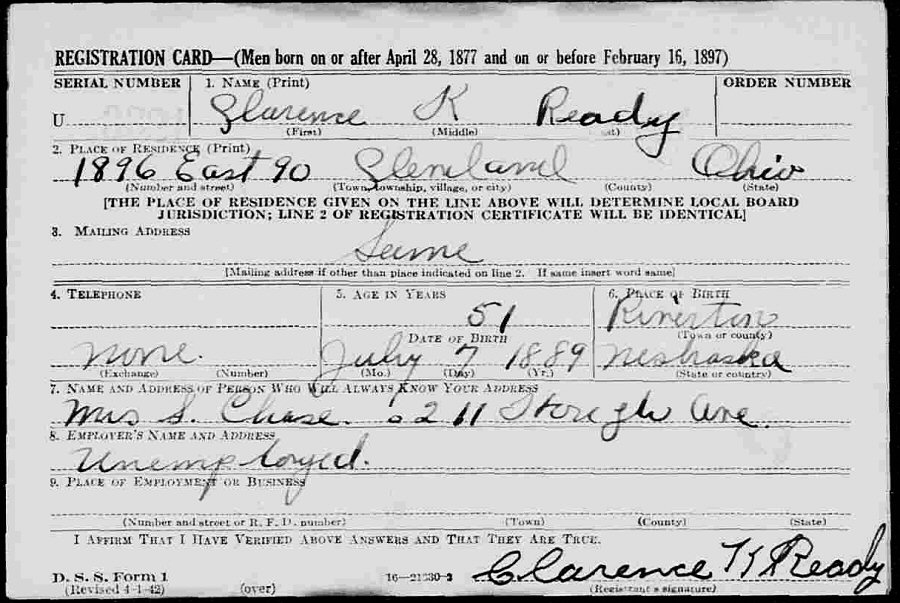 REGISTRATION CARD—(Men born on or after April 28, 1877 and on or before February 16, 1897)
SERIAL NUMBER 1. NAME (Print) ORDER NUMBER
U Clarence K Ready
(First) (Middle) (Last)
2. PLACE OF RESIDENCE (Print)
1896 East 90 Cleveland Ohio
(Number and street) (Town, township, village, or city) (County) (State)
[THE PLACE OF RESIDENCE GIVEN ON THE LINE ABOVE WILL DETERMINE LOCAL BOARD
JURISDICTION; LINE 2 OF REGISTRATION CERTIFICATE WILL BE IDENTICAL]
3. MAILING ADDRESS
Same
[Mailing address if other than place indicated on line 2. If same insert word same]
4. TELEPHONE 5. AGE IN YEARS 6. PLACE OF BIRTH
51 Riverton
DATE OF BIRTH (Town or county)
None. July 7 1889 Nebraska
(Exchange) (Number) (Mo.) (Day) (Yr.) (State or country)
7. NAME AND ADDRESS OF PERSON WHO WILL ALWAYS KNOW YOUR ADDRESS
Mrs S. Chase. 211 Ave.
8. EMPLOYER'S NAME AND ADDRESS
Unemployed.
9. PLACE OF EMPLOYMENT OR BUSINESS
(Number and street or R. F. D. number) (Town) (County) (State)
I AFFIRM THAT I HAVE VERIFIED ABOVE ANSWERS AND THAT THEY ARE TRUE.
D. S. S. Form 1 Clarence K Ready
(Revised 4-1-42) (over) (Registrant's signature)